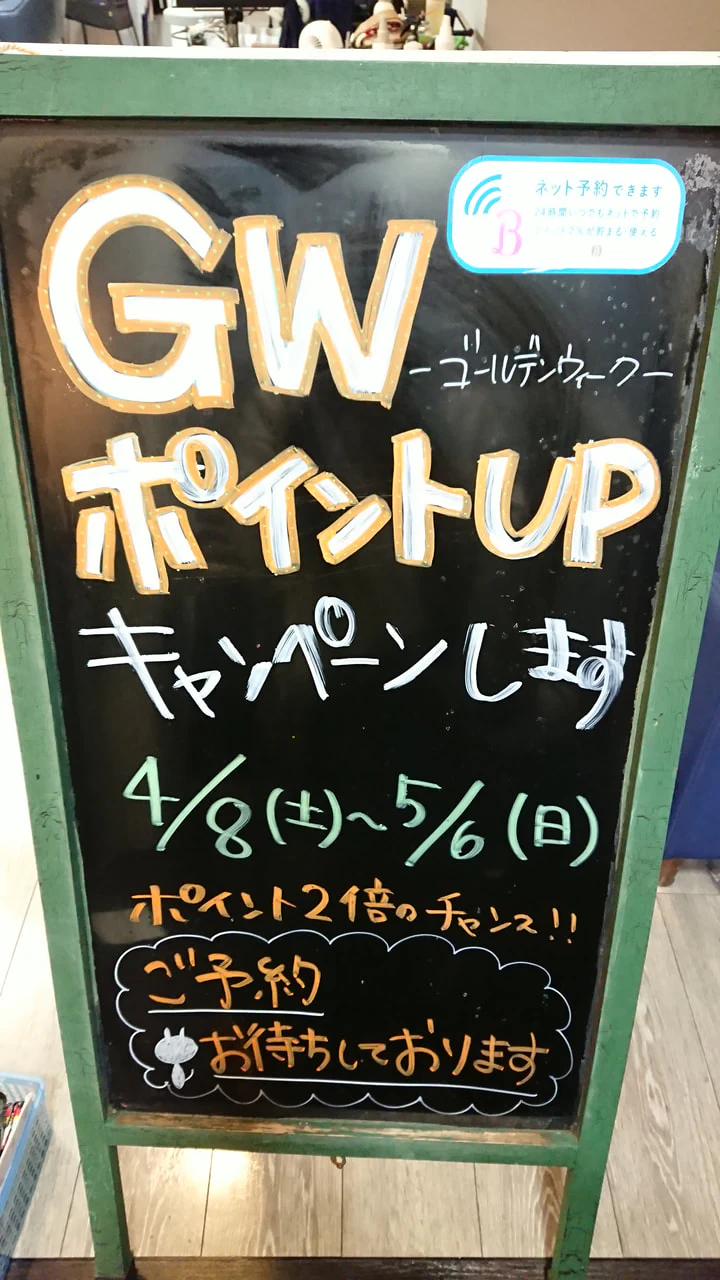 ネット予約できます
24時間いつでもネットで予約
ポイント2%が貯まる・使える
B
GW
－ゴールデンウィーク－
ポイントUP
キャンペーンします
4/8(土)～5/6(日)
ポイント2倍のチャンス!!
ご予約
お待ちしております